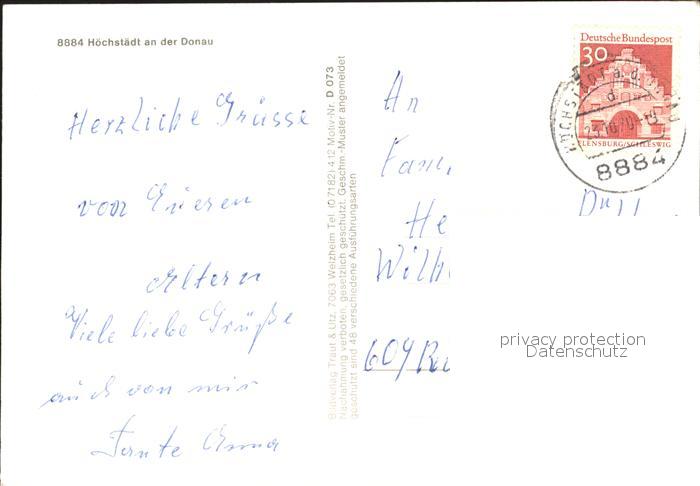 8884 Höchstädt an der Donau
Herzliche Grüsse
von Eueren
Eltern
Viele liebe Grüße
auch von mir
Tante Anna
Bildverlag Traut & Utz, 7063 Welzheim Tel. (07182) 412 Motiv-Nr. D 073
Nachahmung verboten, gesetzlich geschützt. Geschm.-Muster angemeldet
geschützt sind 48 verschiedene Ausführungsarten
An
Fam.
He
Wilh
609
Deutsche Bundespost
30
FLENSBURG/SCHLESWIG
HÖCHSTÄDT a.d. DONAU
d
8884
privacy protection
Datenschutz